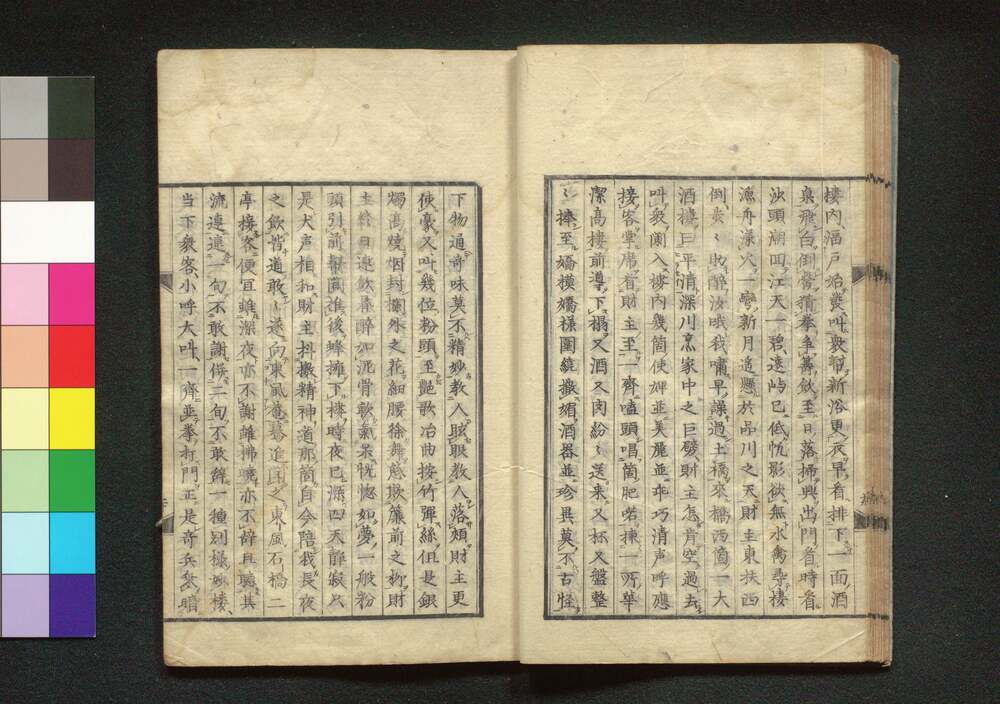 樓內滬戶始叢叫數聲新浴更衣早看排下一面酒
泉飛白倒營猜拳爭籌飲至日落掃興出門看時看
泊頭潮回江天一碧遠帆已低恍影欲無水禽尋棲
漁舟漾火一彎新月遙懸於品川之天財主東扶西
倒裊〻敗醉汝哦我嘯早𧬆過土橋來橋西箇一大
酒樓曰平清深川烹家中之巨擘財主怎肯空過去
叫衆闌入樓內幾箇使婢並美麗並乖巧清声呼應
接客擧席看財主至一齊嗑頭唱箇肥喏揀一所華
潔高樓前導下榻又酒又肉紛〻送來又杯又盤整
〻捧至嬌模嬌樣圍繞撒媚酒器並珍異莫不古怪
下物通奇味莫不精妙教人眩眼教人落頰財主更
使豪又叫幾位粉頭至艷歌冶曲按竹彈絲但是銀
燭高燒烟封檻外之花細腰徐舞態欺簾前之柳財
主終日連飲昏醉如泥骨軟氣杲恍惚如夢一般粉
頭引前幫閑進後蜂擁下樓時夜已深四天靜寂只
是犬声相和財主抖擻精神道那箇自今陪我長夜
之飲皆道敢〻遂向東風菴驀進因之東風石橋二
亭接客便宜雖深夜亦不謝雖拂曉亦不辭且聽其
流連連一句不敢謝俟二句不敢辭一種別樣妙樓
当下衆客小呼大叫一齊並拳打門正是奇兵𠆢暗